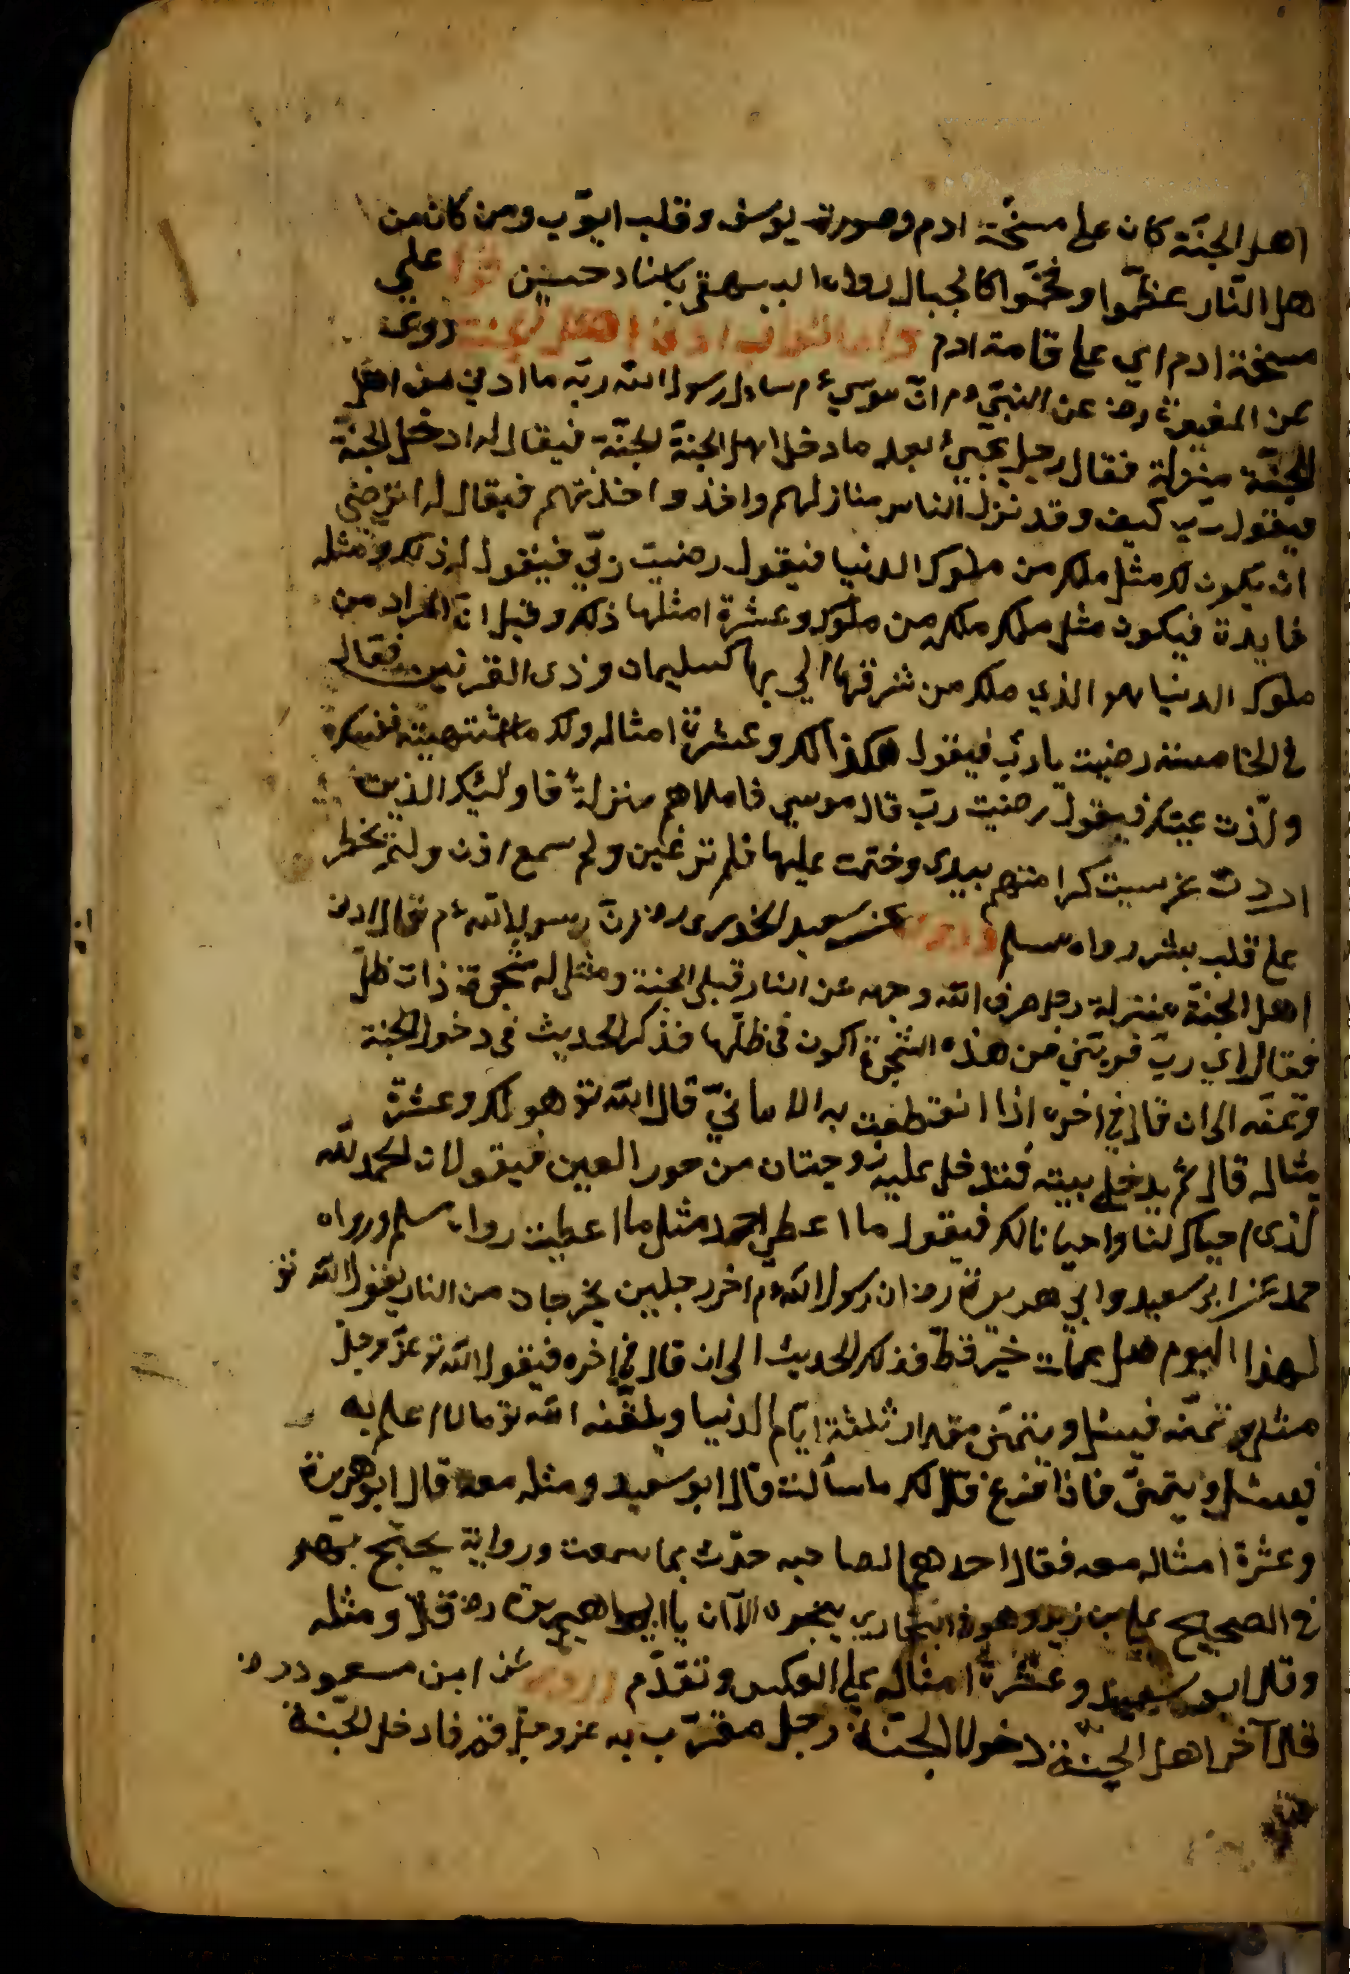 اهل الجنّة كان على مسخّة ادم وصورة يوسف وقلب ايوّب ومن كان من
هل النّار عظّموا وفخّموا كالجبال رواه البيهقي باسناد حسن قوله على
مسخة ادم اي على قامة ادم واما الثواب ادنى اهل الجنة روى
عن المغيرة رض عن النبيّ ءم انّ موسي ءم سأل رسول الله ربّه ما ادني من اهل
الجنّة منزلة فقال رجل يجيئ بعد ما دخل اهل الجنّة الجنّة فيقال له ادخل الجنّة
فيقول ربّ كيف وقد نزل الناس منازلهم واخذوا اخذتهم فيقال له اترضي
ان يكون لك مثل ملك من ملوك الدنيا فيقول رضيت ربّي فيقول له ذلك ومثله
فايدة فيكون مثل ملك ملك من ملوك وعشرة امثلها ذلك وقيل انّ المراد من
ملوك الدنيا هو الذي ملك من شرقها الي بها كسليمان وذى القرنين فقال
في الخامسة رضيت يا ربّ فيقول هكذا لك وعشرة امثاله ولك ما اشتهيته نفسك
ولذّت عينك فيقول رضيت ربّ قال موسي فاعلاهم منزلة قا وليك الذين
اردت غرست كرامتهم بيدى وختمت عليها فلم تر عين ولم سمع اذن ولم يخطر
على قلب بشر رواه مسلم وروى عن سعيد الخدرى رض انّ رسول الله ءم قال ادنى
اهل الجنّة منزلة رجل صرف الله وجهه عن النار قبل الجنة ومثل له شجرة ذات ظلّ
فقال اي ربّ قربّني من هذه الشجرة اكون في ظلّها فذكر الحديث في دخول الجنة
وتمنّه الى ان قال في اخره اذا انقطعت به الامانيّ قال الله تو هو لك وعشرة
مثاله قال ثم يدخل بيته فتدخل عليه زوجتان من حور العين فيقولان الحمد للّه
لذى احياك لنا واحيانا لك فيقول ما اعطي احد مثل ما اعطيت رواه مسلم ورواه
حمد عن ابى سعيد وابي هريرة رض ان رسول الله ءم اخر رجلين يخرجان من النار يقول الله تو
لهذا اليوم هل عملت خيّر قطّ فذكر الحديث الى ان قال في اخره فيقول الله تو عزّ وجلّ
سل وتمنّه فيسئل ويتمنّى مقدار ثلثة ايّام الدنيا ويلقّنه الله تو مالا علم به
فيسئل ويتمنّى فاذا فرغ قال لك ما سألت قال ابو سعيد ومثله معه قال ابو هريرة
وعشرة امثاله معه فقال احدهما لصاحبه حدّث بما سمعت ورواية يحتج بهو
في الصحيح علي بن زيد وهو في البخاري بنحوه الآ ان ابا هريرة رض قال ومثله
وقال ابو سعيد وعشرة امثاله علي العكس وتقدّم وروى عن ابن مسعود رض
قال آخر اهل الجنّة دخولا الجنّة رجل مقرّب به عزّ وجلّ قم فادخل الجنّة